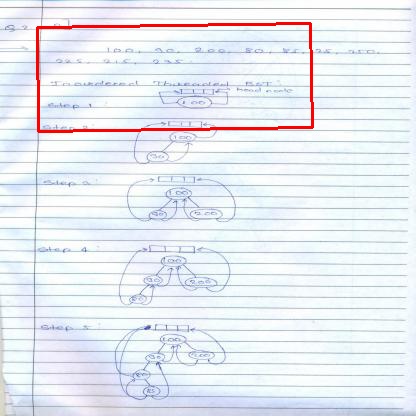 Q.2
100, 90, 200, 80, 85, 75, 250,
225, 215, 235.
Inordered Threaded BST:
head node
Step 1
100
Step 2:
100
90
Step 3:
100
90
200
Step 4
100
90
200
80
Step 5:
100
90
200
80
85